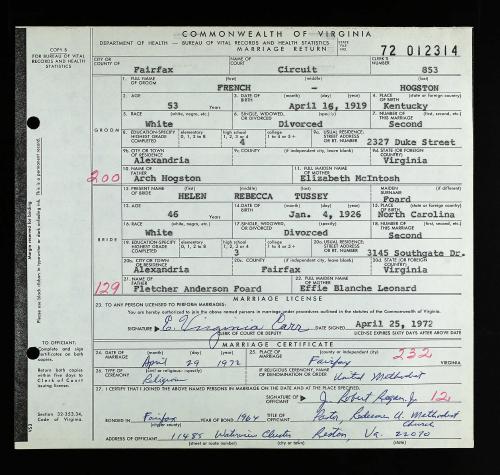 COMMONWEALTH OF VIRGINIA
DEPARTMENT OF HEALTH — BUREAU OF VITAL RECORDS AND HEALTH STATISTICS
MARRIAGE RETURN
STATE FILE NO. 72 012314
COPY B
FOR BUREAU OF VITAL RECORDS AND HEALTH STATISTICS
CITY OR COUNTY OF Fairfax NAME OF COURT Circuit CLERK'S NUMBER 853
1. FULL NAME OF GROOM (first) (middle) (last)
FRENCH - HOGSTON
2. AGE 53 3. DATE OF BIRTH (month) (day) (year) April 16, 1919 4. PLACE OF BIRTH (state or foreign country) Kentucky
5. RACE (white, negro, etc.) White 6. SINGLE, WIDOWED, OR DIVORCED Divorced 7. NUMBER OF THIS MARRIAGE (first, second, etc.) Second
GROOM
8. EDUCATION-SPECIFY HIGHEST GRADE COMPLETED elementary 0, 1 to 8 high school 1 to 4 4 college 1 to 5+ 9a. USUAL RESIDENCE: STREET ADDRESS OR RT. NO. 2327 Duke Street
9b. CITY OR TOWN OF RESIDENCE Alexandria 9c. COUNTY (if independent city, leave blank) 9d. STATE (OR FOREIGN COUNTRY) Virginia
200 10. NAME OF FATHER Arch Hogston 11. FULL MAIDEN NAME OF MOTHER Elizabeth McIntosh
12. PRESENT NAME OF BRIDE (first) (middle) (last) MAIDEN SURNAME
HELEN REBECCA TUSSEY Foard
13. AGE 46 14. DATE OF BIRTH (month) (day) (year) Jan. 4, 1926 15. PLACE OF BIRTH (state or foreign country) North Carolina
16. RACE (white, negro, etc.) White 17. SINGLE, WIDOWED, OR DIVORCED Divorced 18. NUMBER OF THIS MARRIAGE (first, second, etc.) Second
BRIDE
19. EDUCATION-SPECIFY HIGHEST GRADE COMPLETED elementary 0, 1 to 8 high school 1 to 4 3 college 1 to 5+ 20a. USUAL RESIDENCE: STREET ADDRESS OR RT. NO. 3145 Southgate Dr.
20b. CITY OR TOWN OF RESIDENCE Alexandria 20c. COUNTY (if independent city, leave blank) Fairfax 20d. STATE (OR FOREIGN COUNTRY) Virginia
129 21. NAME OF FATHER Fletcher Anderson Foard 22. FULL MAIDEN NAME OF MOTHER Effie Blanche Leonard
MARRIAGE LICENSE
23. TO ANY PERSON LICENSED TO PERFORM MARRIAGES:
You are hereby authorized to join the above named persons in marriage under procedures outlined in the statutes of the Commonwealth of Virginia.
SIGNATURE E. Virginia Carr CLERK OF COURT OR DEPUTY DATE SIGNED April 25, 1972
LICENSE EXPIRES SIXTY DAYS AFTER ABOVE DATE
MARRIAGE CERTIFICATE
24. DATE OF MARRIAGE (month) (day) (year) April 29 1972 25. PLACE OF MARRIAGE (county or independent city) Fairfax 232 VIRGINIA
26. TYPE OF CEREMONY Religious IF RELIGIOUS CEREMONY, NAME OF DENOMINATION OR ORDER United Methodist
27. I CERTIFY THAT I JOINED THE ABOVE NAMED PERSONS IN MARRIAGE ON THE DATE AND AT THE PLACE SPECIFIED.
SIGNATURE OF OFFICIANT J. Robert Regan, Jr 12
BONDED IN Fairfax YEAR OF BOND 1964 TITLE OF OFFICIANT Pastor, Redeemer U. Methodist Church
ADDRESS OF OFFICIANT 11485 Waterview Cluster Reston Va. 22070
Margin reserved for binding
This is a permanent record.
Please use black ribbon in typewriter or dark unfading ink.
TO OFFICIANT:
Complete and sign certificates on both copies.
Return both copies within five days to Clerk of Court issuing license.
Section 32-353.34, Code of Virginia.
VS3